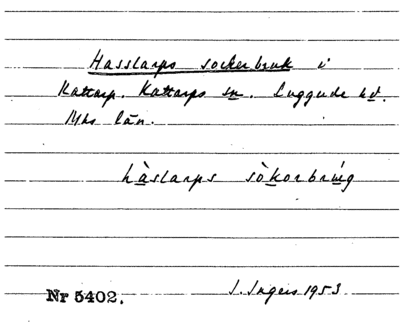 Hasslarps sockerbruk i
Kattarp. Kattarps sn. Luggude hd.
Mhs län.
hàslarps sòkorbrúg
Nr 5402. I. Ingers 1953